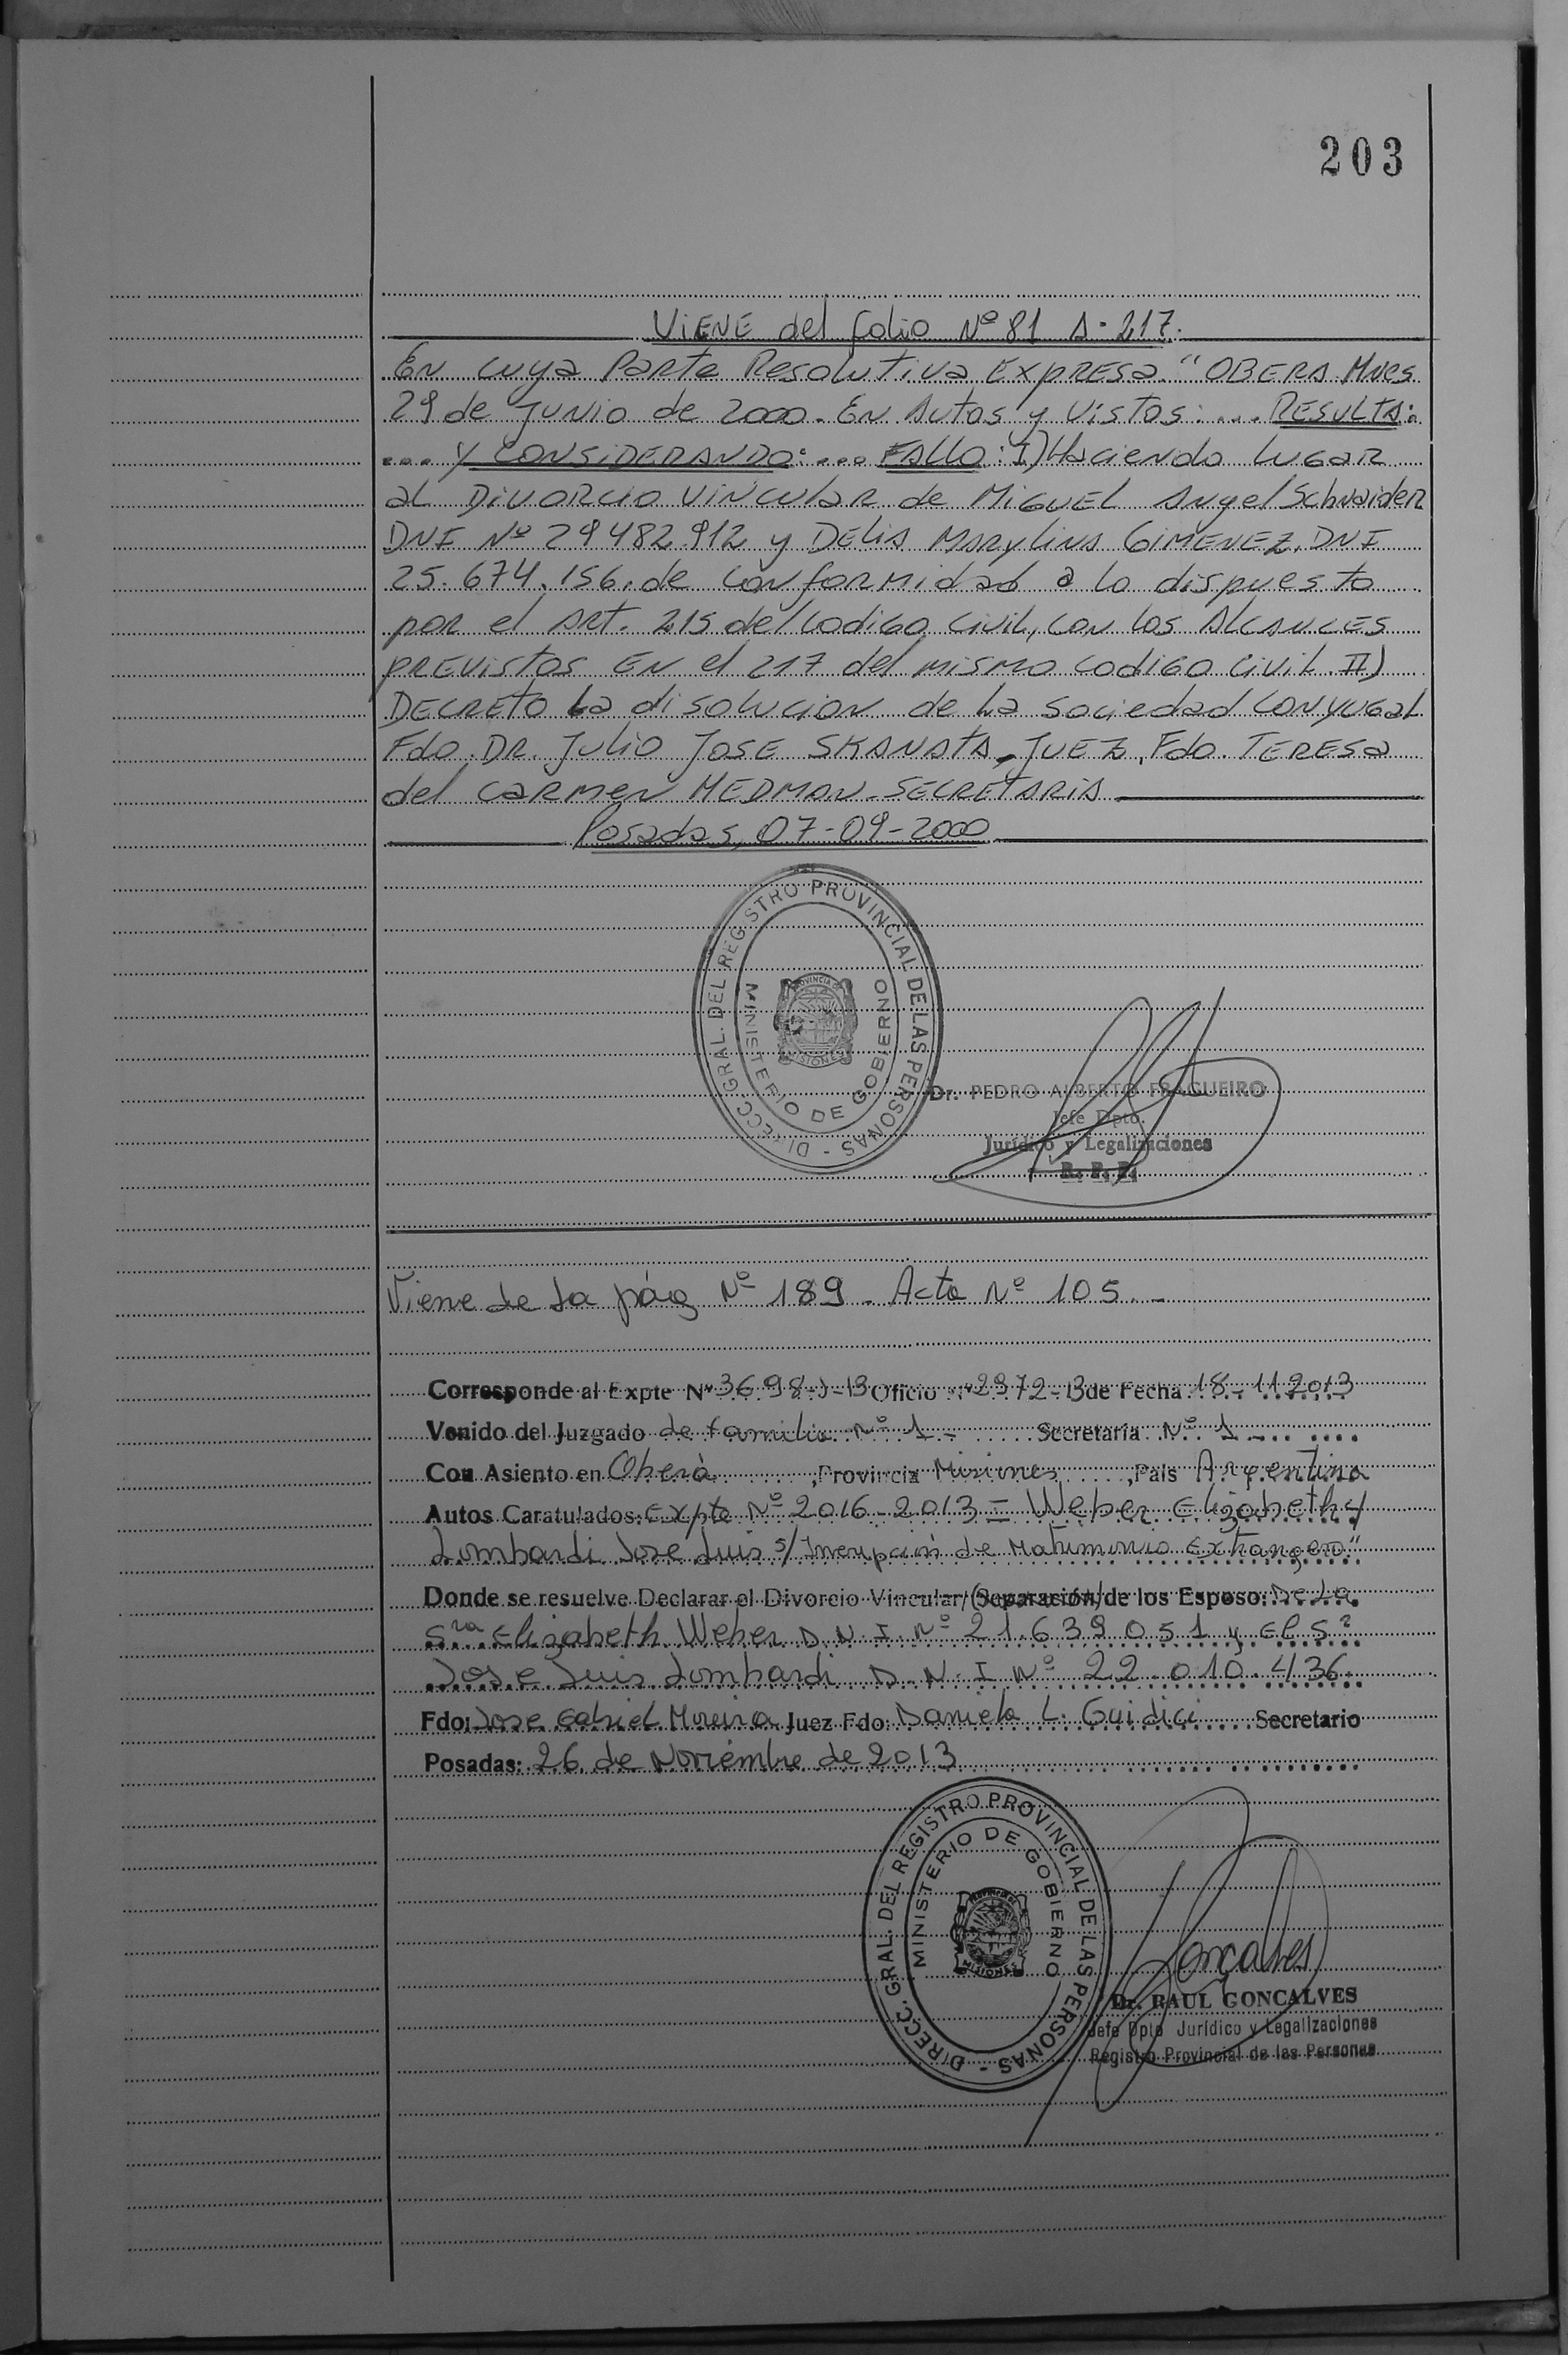 203
VIENE del folio Nº 81 A-217.
En cuya Parte Resolutiva Expresa. "OBERA Mnes
29 de Junio de 2000. En Autos y Vistos: ... RESULTA:
... Y CONSIDERANDO: ... FALLO: I) Haciendo lugar
al Divorcio Vincular de Miguel Angel Schnaider
DNI Nº 29482.912 y DELIA MARYLINA GIMENEZ, DNI
25.674.156. de conformidad a lo dispuesto
por el Art. 215 del Codigo Civil, con los Alcances
previstos En el 217 del mismo codigo civil. II)
DECRETO La disolucion de La sociedad conyugal
Fdo. DR. Julio Jose SKANATA, Juez, Fdo. TERESA
del Carmen HEDMAN. SECRETARIA
Posadas, 07-09-2000
DIRECC. GRAL. DEL REGISTRO PROVINCIAL DE LAS PERSONAS -
MINISTERIO DE GOBIERNO
PROVINCIA
MISIONES
Dr. PEDRO ALBERTO FRAGUEIRO
Jefe Dpto.
Jurídico y Legalizaciones
R. P. P.
Viene de La pág Nº 189. Acta Nº 105.-
Corresponde al Expte Nº 3698-J-13 Oficio Nº 2972-13 de Fecha 18-11-2013
Venido del Juzgado de familia Nº 1.- Secretaría Nº 1
Con Asiento en Oberá, Provincia Misiones, País Argentina
Autos Caratulados: Expte Nº 2016-2013 = Weber Elizabeth y
Lombardi Jose Luis s/ Inscripción de Matrimonio Extrangero"
Donde se resuelve Declarar el Divorcio Vincular/(Separación) de los Esposo: De La
Sra Elizabeth Weber D.N.I. Nº 21.639.051 y El Sr
Jose Luis Lombardi D.N.I Nº 22.010.436.
Fdo: Jose Gabriel Moreira Juez Fdo: Daniela L. Guidici Secretario
Posadas: 26 de Noviembre de 2013
DIRECC. GRAL. DEL REGISTRO PROVINCIAL DE LAS PERSONAS -
MINISTERIO DE GOBIERNO
PROVINCIA DE
MISIONES
Gonçalves
Dr. RAUL GONCALVES
Jefe Dpto Jurídico y Legalizaciones
Registro Provincial de las Personas